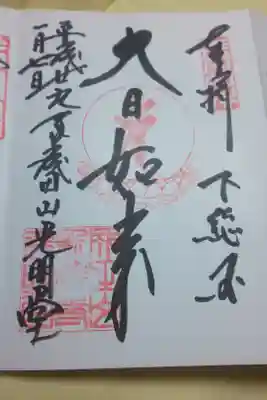 奉拝 下総国
大日如来
平成廿九年 成田山光明堂
一月七日